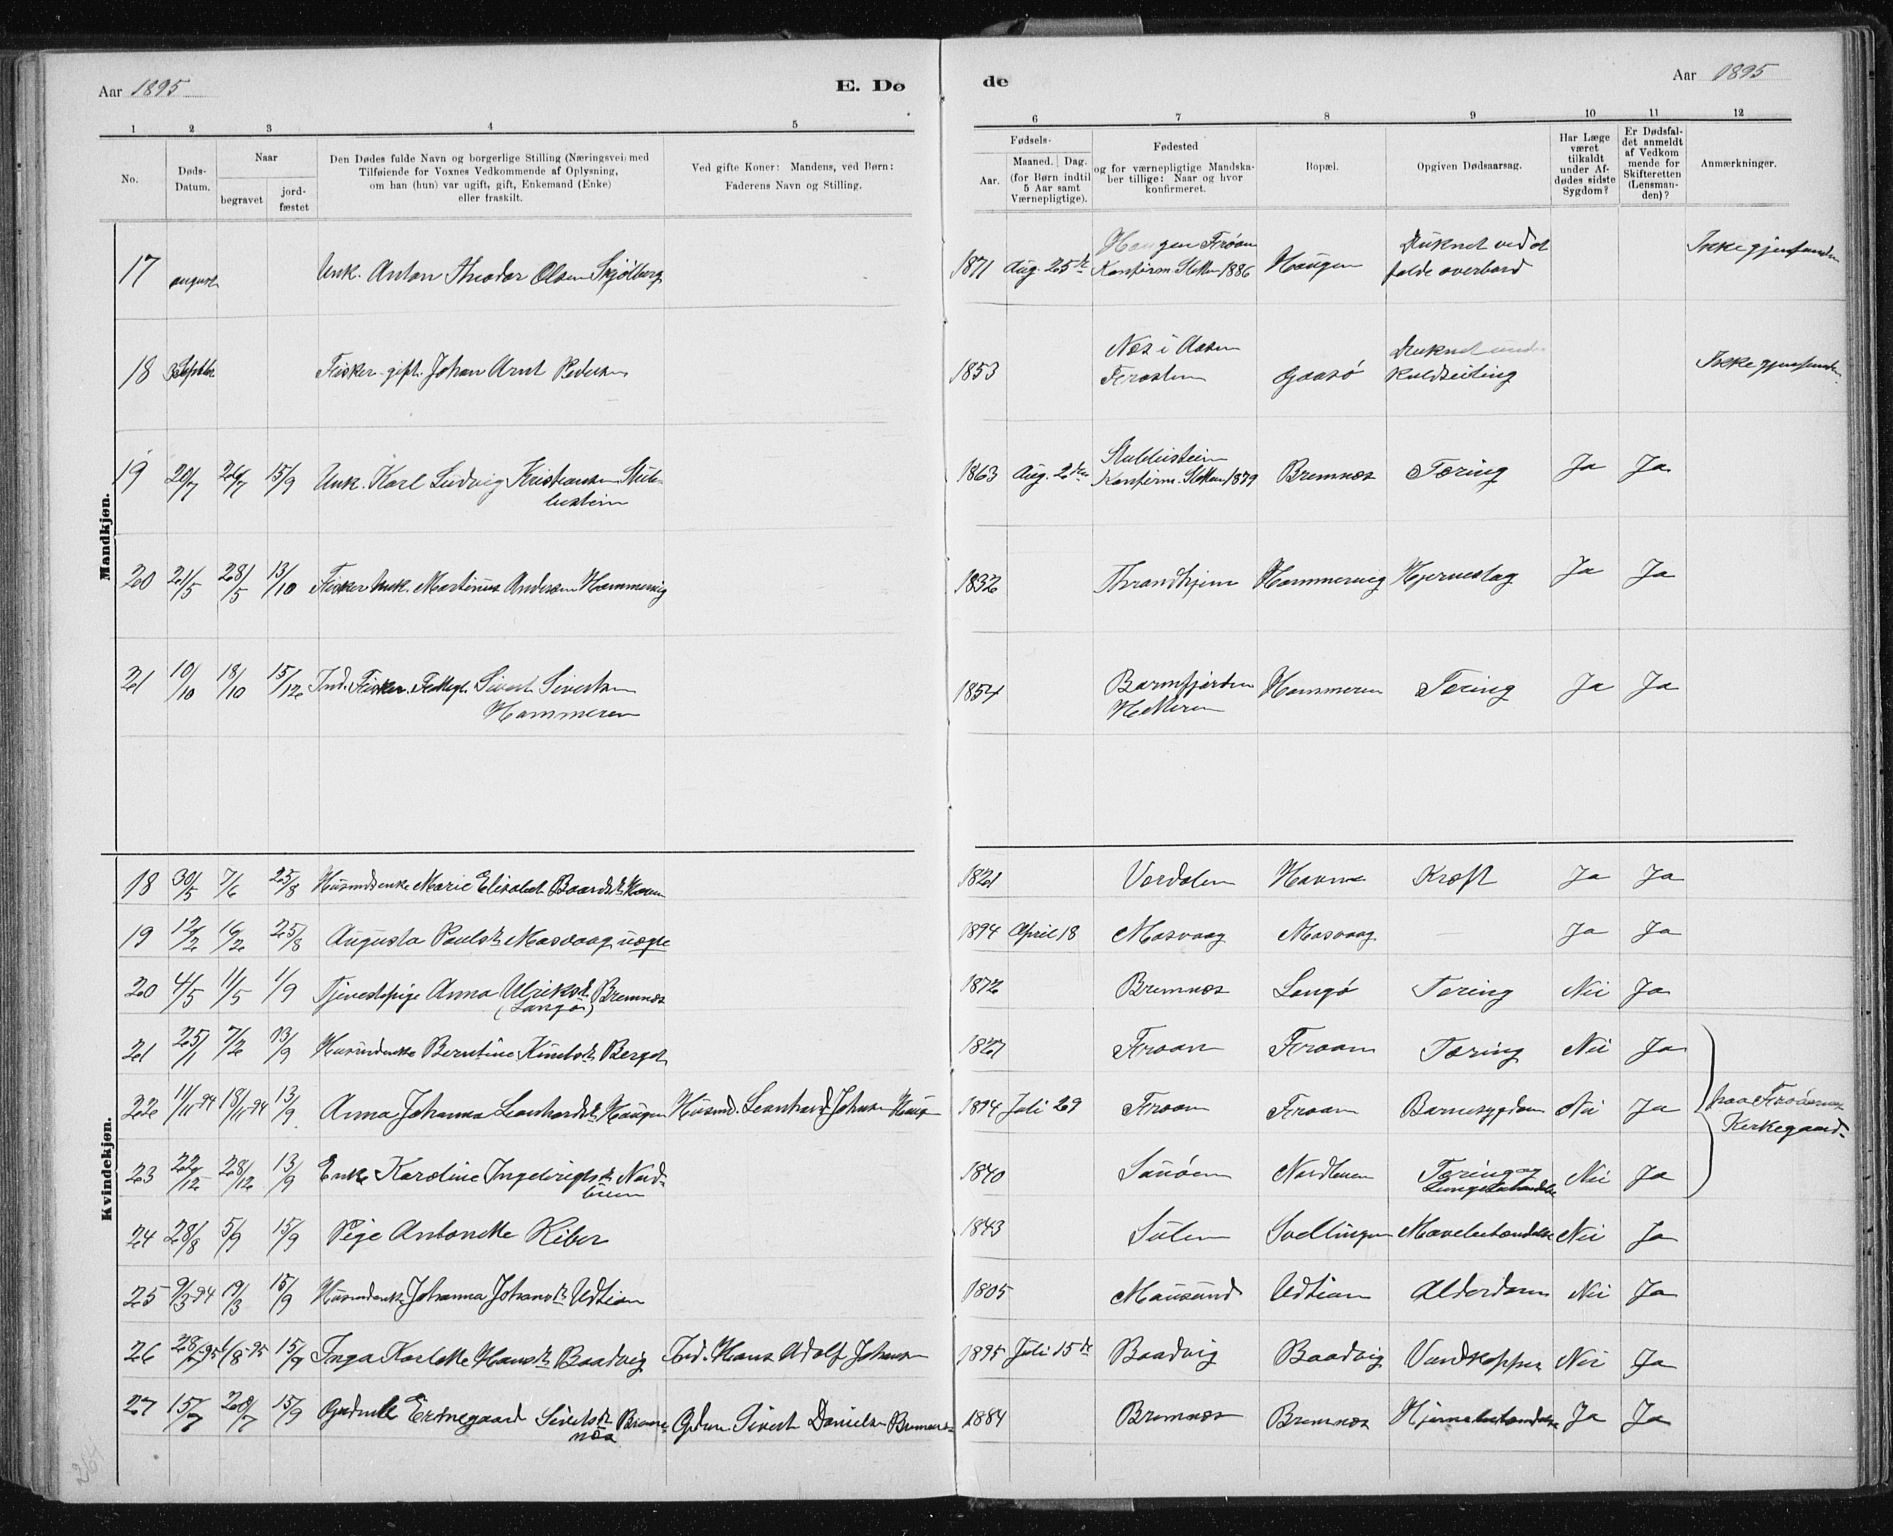 Aar 1895
E. Dø
de
Aar 1895
1 2 3 4 5 6 7 8 9 10 11 12
No.
Døds-
Datum.
Naar
begravet
jord-
fæstet
Den Dødes fulde Navn og borgerlige Stilling (Næringsvei) med
Tilføiende for Voxnes Vedkommende af Oplysning,
om han (hun) var ugift, gift, Enkemand (Enke)
eller fraskilt.
Ved gifte Koner: Mandens, ved Børn:
Faderens Navn og Stilling.
Fødsels-
Aar.
Maaned. Dag.
(for Børn indtil
5 Aar samt
Værnepligtige).
Fødested
og for værnepligtige Mandska-
ber tillige: Naar og hvor
konfirmeret.
Bopæl.
Opgiven Dødsaarsag.
Har Læge
været
tilkaldt
under Af-
dødes sidste
Sygdom?
Er Dødsfal-
det anmeldt
af Vedkom
mende for
Skifteretten
(Lensman-
den)?
Anmærkninger.
Mandkjøn.
17 august Unk. Anton Theodor Olsen Skjølberg 1871 Aug. 25de Haugen Froan Haugen Druknet ved at Ikke gjenfunden
Konfirm. Sletten 1886 falde overbord
18 Fisker gift. Johan Arnt Pedersen 1853 Næs i Aasen Gaasø Druknet under Ikke gjenfunden
Frosten Kuldseiling
19 20/7 26/7 15/9 Unk. Karl Ludvig Kristiansen Stub- 1863 Aug. 2den Stubbustein Bremnæs Tæring Ja Ja
bustein Konfirm. Sletten 1879
20 21/5 28/5 13/10 Fisker Unk. Martinus Andersen Hammervig 1832 Throndhjem Hammervig Hjerneslag Ja Ja
21 10/10 18/10 15/12 Ind. Fisker. Sivert Sivertsen 1854 Barmfjorden Hammeren Tering Ja Ja
Hammeren Hitteren
Kvindekjøn.
18 30/5 7/6 25/8 Husmdsenke Marie Elisabet Baardsdt. Havn 1821 Verdalen Havn Kræft Ja Ja
19 12/2 16/2 25/8 Augusta Paulsdt. Masvaag uægte 1894 April 18 Masvaag Masvaag — Ja Ja
20 4/5 11/5 1/9 Tjenestpige Anna Ulriksdt. Bremnæs 1872 Bremnæs Langø Tering Nei Ja
(Langø)
21 25/1 7/2 13/9 Husmdenke Berntine Knudsdt. Berget 1821 Froan Froan Tæring Nei Ja
22 11/11-94 18/11-94 13/9 Anna Johanna Leonhardsdt. Haugen Husmd. Leonhard Johnsen Haugen 1894 Juli 29 Froan Froan Barnesygdom Nei Ja
paa Froøernes
Kirkegaard.
23 22/12 28/12 13/9 Enke Karoline Ingebrigtsdt. Nord- 1840 Sauøen Nordbuen Tering og Nei Ja
buen Lungebetændelse
24 28/8 5/9 15/9 Pige Antonette Riber 1843 Sulen Svellingen Mavebetændelse Nei Ja
25 9/3 94 19/3 15/9 Husmdenke Johanna Johansdt. Udtian 1805 Mausund Udtian Alderdom Nei Ja
26 28/7-95 4/8-95 15/9 Inga Karlotte Hansdt. Baadvig Ind. Hans Adolf Johansen 1895 Juli 15de Baadvig Baadvig Vandkopper Nei Ja
27 15/7 20/7 15/9 Erdnegaard Sivertsdt. Brem- Gdm. Sivert Danielsen Bremnæs 1884 Bremnæs Bremnæs Hjernebetændelse Ja Ja
næs
264